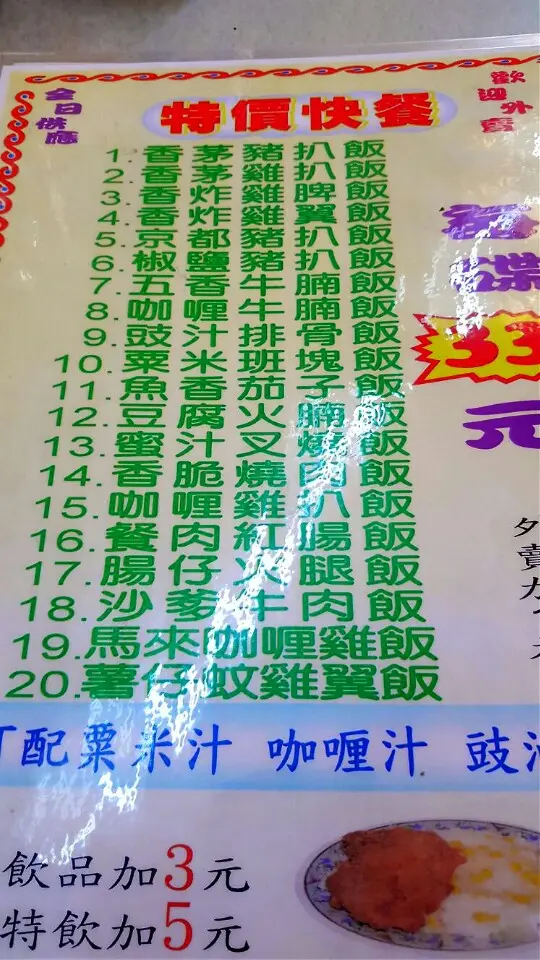 全日供應
特價快餐
歡迎外賣
1.香茅豬扒飯
2.香茅雞扒飯
3.香炸雞脾飯
4.香炸雞翼飯
5.京都豬扒飯
6.椒鹽豬扒飯
7.五香牛腩飯
8.咖喱牛腩飯
9.豉汁排骨飯
10.粟米班塊飯
11.魚香茄子飯
12.豆腐火腩飯
13.蜜汁叉燒飯
14.香脆燒肉飯
15.咖喱雞扒飯
16.餐肉紅腸飯
17.腸仔火腿飯
18.沙爹牛肉飯
19.馬來咖喱雞飯
20.薯仔蚊雞翼飯
33
元
外賣
配粟米汁 咖喱汁 豉
飲品加3元
特飲加5元